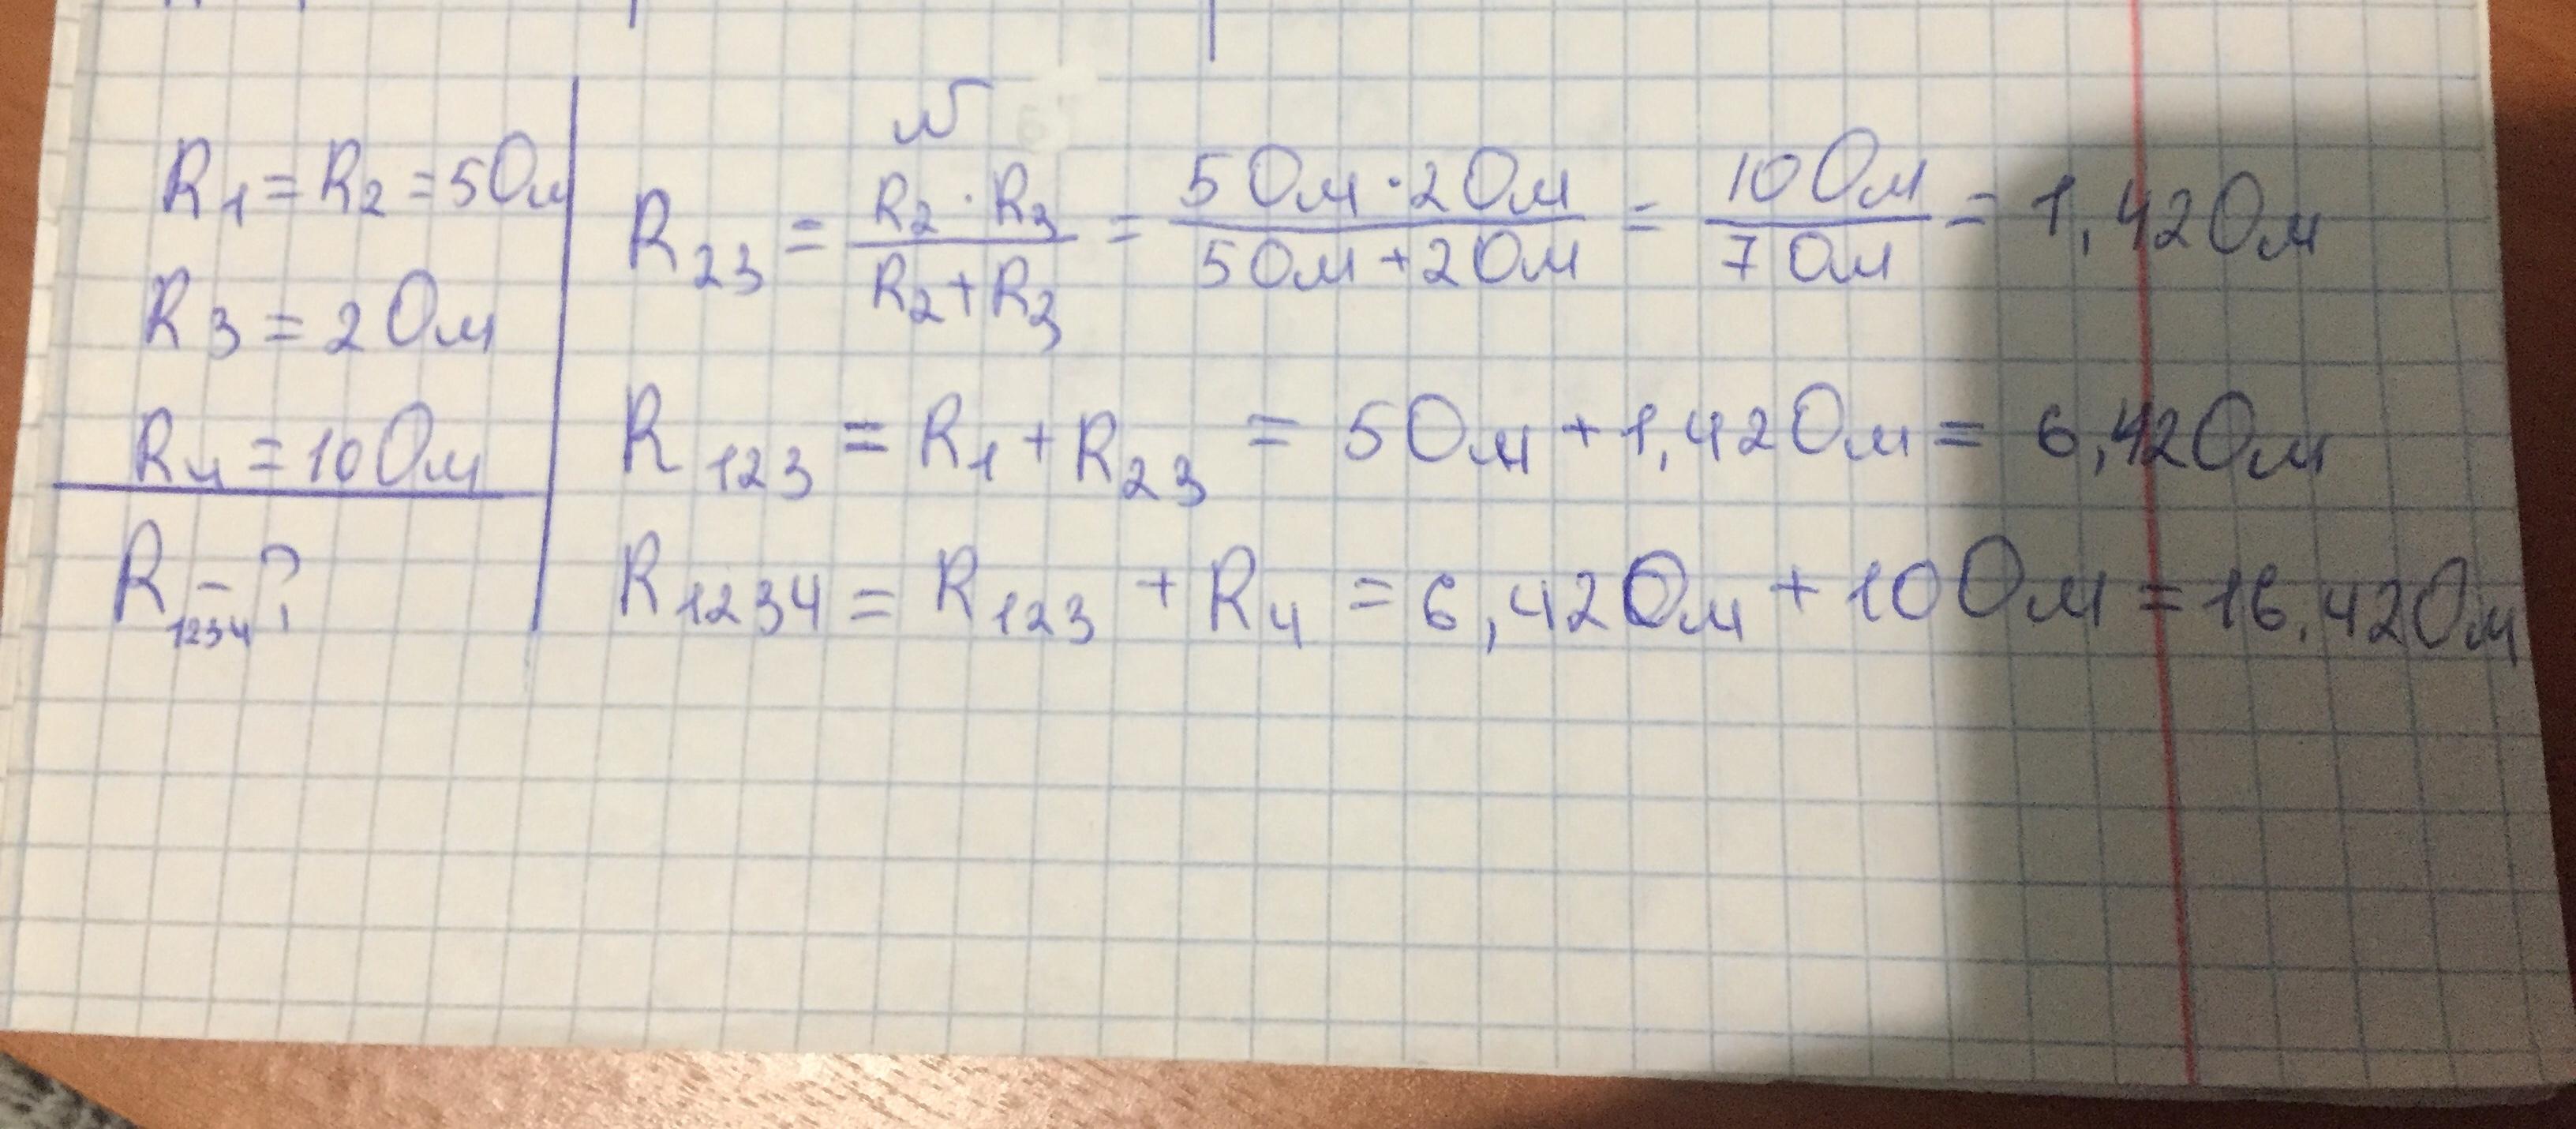 N
R1 = R2 = 5 Ом
R3 = 2 Ом
R4 = 10 Ом
R1234 - ?
R23 = R2 · R3 / R2 + R3 = 5 Ом · 2 Ом / 5 Ом + 2 Ом = 10 Ом / 7 Ом = 1,42 Ом
R123 = R1 + R23 = 5 Ом + 1,42 Ом = 6,42 Ом
R1234 = R123 + R4 = 6,42 Ом + 10 Ом = 16,42 Ом